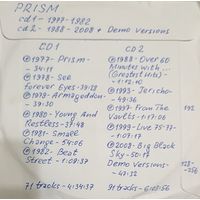 PRISM
cd1 - 1977-1982
cd2 - 1988-2008 + Demo versions
CD1
℗1977- Prism-
- 34:11
℗1978- See
forever Eyes-39:23
℗1979- Armageddon-
- 39:30
℗1980- Young And
Restless-37:48
℗1981- Small
Change-54:06
℗1982- Beat
Street - 1:09:37
71 tracks - 4:34:37
CD2
℗1988- Over 60
Minutes with...
(Greatest Hits)-
- 1:12:10
℗1993- Jericho-
- 49:36
℗1997- From The
Vaults - 1:17:06
℗1999- Live 75-77-
- 1:09:17
℗2008- Big Black
Sky - 50:17
Demo Versions-
- 47:32
91 tracks - 6:07:56
192
128-
-256